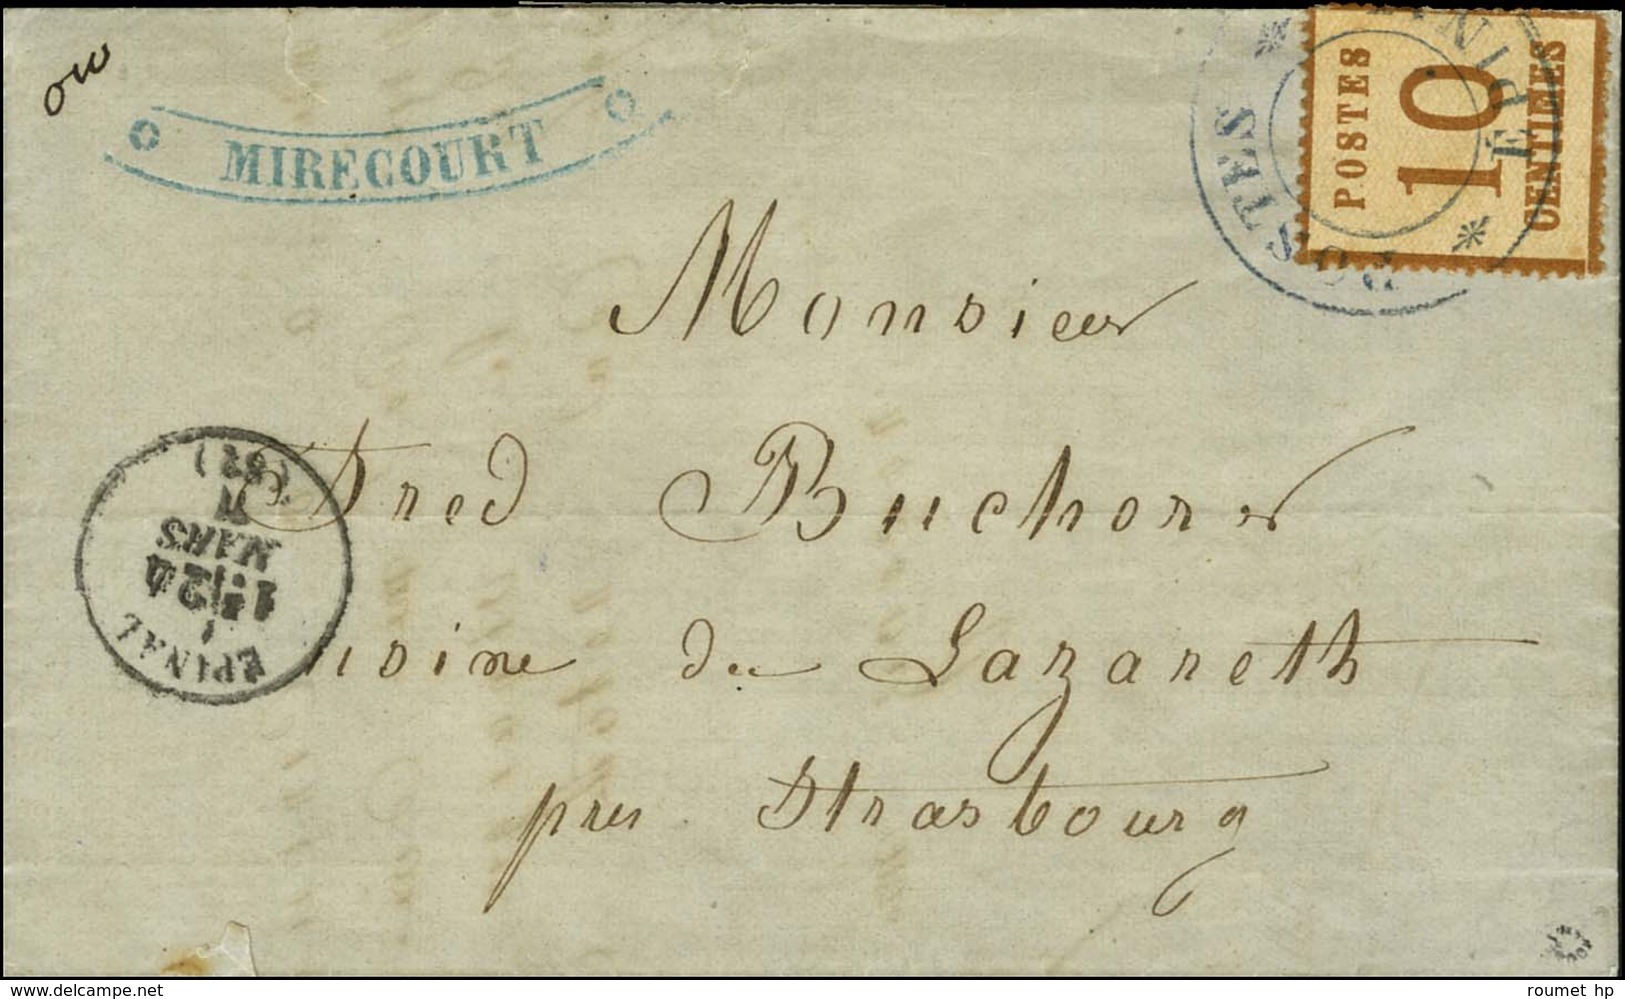 MIRECOURT
POSTES
10
CENTIMES
* POSTES * ÉPINAL
Monsieur
Fred Bucherer
usine du Lazareth
près Strasbourg
EPINAL
1E/24
MARS
71
(82)
delcampe.net
roumet_hp